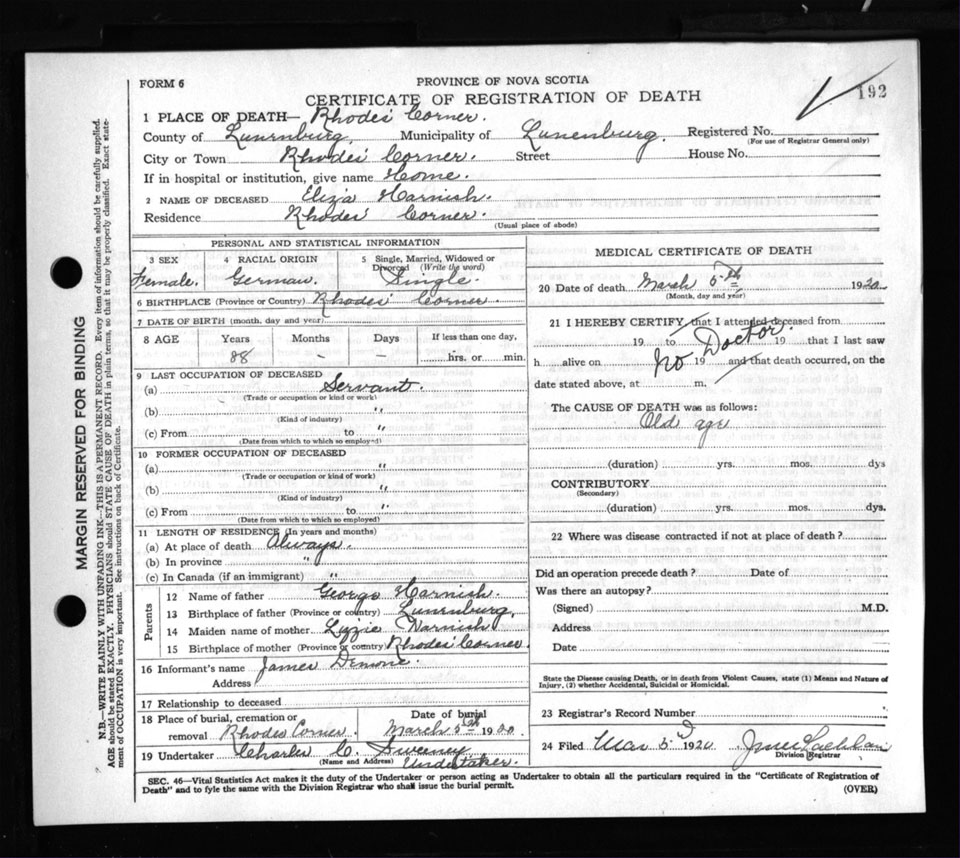 FORM 6
PROVINCE OF NOVA SCOTIA
CERTIFICATE OF REGISTRATION OF DEATH
192
1 PLACE OF DEATH— Rhodes Corner.
County of Lunenburg, Municipality of Lunenburg. Registered No.
(For use of Registrar General only)
City or Town Rhodes Corner. Street House No.
If in hospital or institution, give name Home.
2 NAME OF DECEASED Eliza Harnish.
Residence Rhodes Corner.
(Usual place of abode)
PERSONAL AND STATISTICAL INFORMATION
3 SEX 4 RACIAL ORIGIN 5 Single, Married, Widowed or Divorced (Write the word)
Female. German. Single.
6 BIRTHPLACE (Province or Country) Rhodes Corner
7 DATE OF BIRTH (month, day and year)
8 AGE Years Months Days If less than one day,
88 – – hrs. or min.
9 LAST OCCUPATION OF DECEASED
(a) Servant.
(Trade or occupation or kind or work)
(b) "
(Kind of industry)
(c) From to "
(Date from which to which so employed)
10 FORMER OCCUPATION OF DECEASED
(a) "
(Trade or occupation or kind of work)
(b) "
(Kind of industry)
(c) From to "
(Date from which to which so employed)
11 LENGTH OF RESIDENCE (In years and months)
(a) At place of death Always.
(b) In province "
(c) In Canada (if an immigrant) "
Parents
12 Name of father George Harnish.
13 Birthplace of father (Province or country) Lunenburg,
14 Maiden name of mother Lizzie Harnish
15 Birthplace of mother (Province or country) Rhodes Corner.
16 Informant's name James
Address
17 Relationship to deceased
18 Place of burial, cremation or removal Rhodes Corner Date of burial March 5th 1920.
19 Undertaker Charles C. Sweeny
(Name and Address) Undertaker.
MEDICAL CERTIFICATE OF DEATH
20 Date of death March 5th 1920
(Month, day and year)
21 I HEREBY CERTIFY that I attended deceased from
19 to 19 that I last saw
h alive on 19 and that death occurred, on the
No Doctor
date stated above, at m.
The CAUSE OF DEATH was as follows:
Old age
(duration) yrs. mos. dys
CONTRIBUTORY
(Secondary)
(duration) yrs. mos. dys.
22 Where was disease contracted if not at place of death?
Did an operation precede death? Date of
Was there an autopsy?
(Signed) M.D.
Address
Date
State the Disease causing Death, or in death from Violent Causes, state (1) Means and Nature of
Injury, (2) whether Accidental, Suicidal or Homicidal.
23 Registrar's Record Number
24 Filed Mar 5 1920
Division Registrar
SEC. 46—Vital Statistics Act makes it the duty of the Undertaker or person acting as Undertaker to obtain all the particulars required in the "Certificate of Registration of
Death" and to fyle the same with the Division Registrar who shall issue the burial permit.
(OVER)
MARGIN RESERVED FOR BINDING
N.B.—WRITE PLAINLY WITH UNFADING INK—THIS IS A PERMANENT RECORD. Every item of information should be carefully supplied.
AGE should be stated EXACTLY. PHYSICIANS should STATE CAUSE OF DEATH in plain terms, so that it may be properly classified. Exact state-
ment of OCCUPATION is very important. See instructions on back of Certificate.